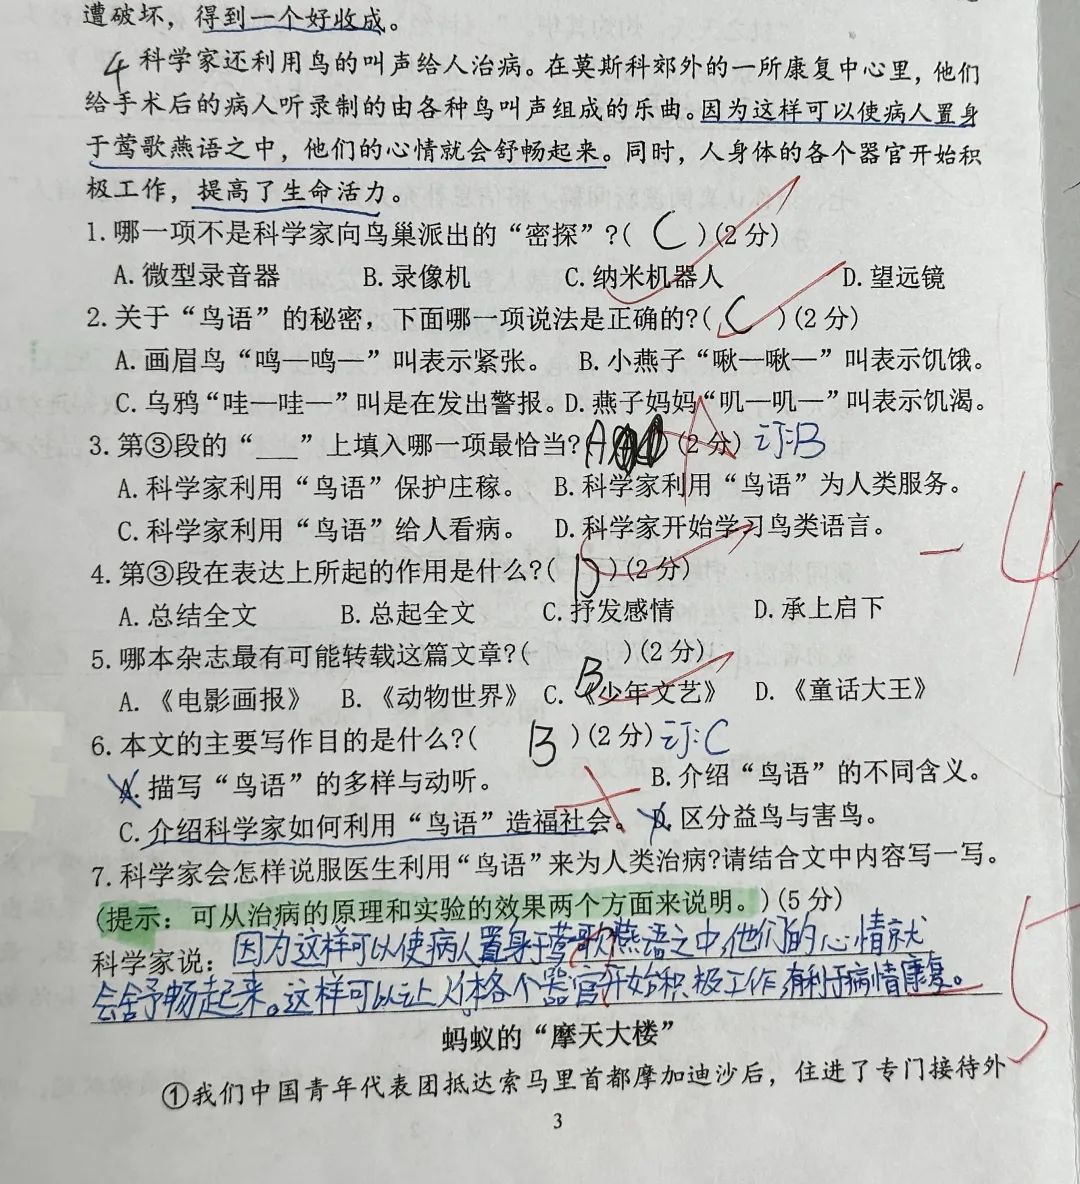 遭破坏，得到一个好收成。
4 科学家还利用鸟的叫声给人治病。在莫斯科郊外的一所康复中心里，他们
给手术后的病人听录制的由各种鸟叫声组成的乐曲。因为这样可以使病人置身
于莺歌燕语之中，他们的心情就会舒畅起来。同时，人身体的各个器官开始积
极工作，提高了生命活力。
1.哪一项不是科学家向鸟巢派出的“密探”?( C )(2分)
A.微型录音器 B.录像机 C.纳米机器人 D.望远镜
2.关于“鸟语”的秘密，下面哪一项说法是正确的?( C )(2分)
A.画眉鸟“鸣—鸣—”叫表示紧张。 B.小燕子“啾—啾—”叫表示饥饿。
C.乌鸦“哇—哇—”叫是在发出警报。D.燕子妈妈“叽—叽—”叫表示饥渴。
3.第③段的“__”上填入哪一项最恰当?(A )(2分) 订:B
A.科学家利用“鸟语”保护庄稼。 B.科学家利用“鸟语”为人类服务。
C.科学家利用“鸟语”给人看病。 D.科学家开始学习鸟类语言。
4.第③段在表达上所起的作用是什么?( D )(2分)
A.总结全文 B.总起全文 C.抒发感情 D.承上启下
-4
5.哪本杂志最有可能转载这篇文章?( B )(2分)
A.《电影画报》 B.《动物世界》 C.《少年文艺》 D.《童话大王》
6.本文的主要写作目的是什么?( B )(2分) 订:C
A.描写“鸟语”的多样与动听。 B.介绍“鸟语”的不同含义。
C.介绍科学家如何利用“鸟语”造福社会。 D.区分益鸟与害鸟。
7.科学家会怎样说服医生利用“鸟语”来为人类治病?请结合文中内容写一写。
(提示：可从治病的原理和实验的效果两个方面来说明。)(5分)
科学家说：因为这样可以使病人置身于莺歌燕语之中,他们的心情就
会舍予畅起来。这样可以让人体各个器官开始积极工作,有利于病情康复。
5
蚂蚁的“摩天大楼”
①我们中国青年代表团抵达索马里首都摩加迪沙后，住进了专门接待外
3